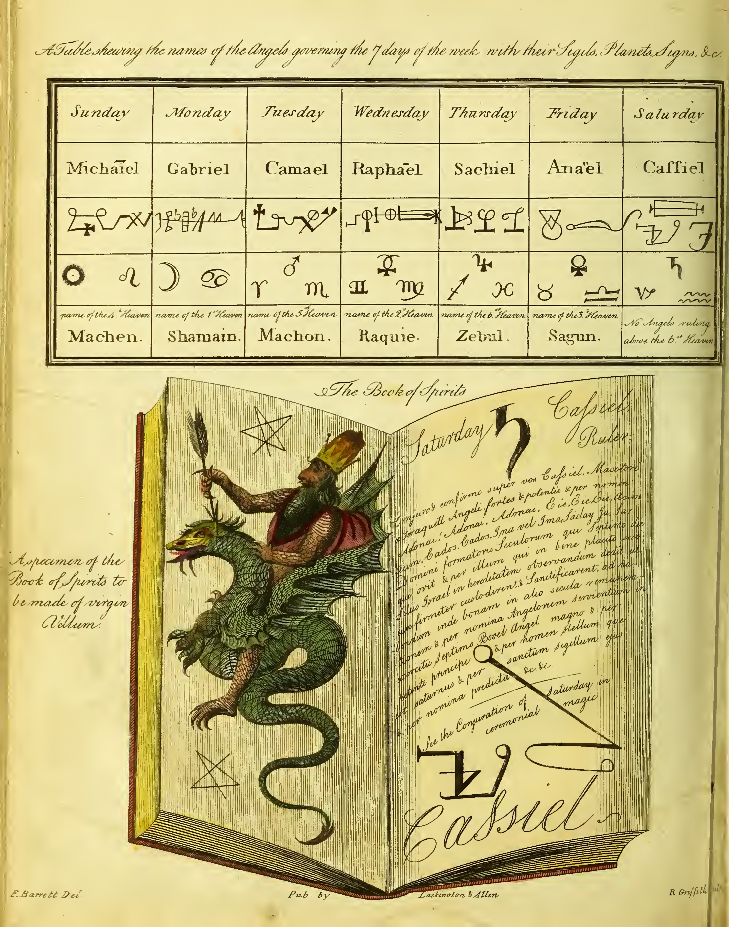 A Table shewing the names of the Angels governing the 7 days of the week with their Sigils, Planets, Signs, &c.
Sunday Monday Tuesday Wednesday Thursday Friday Saturday
Michaïel Gabriel Camael Raphaël Sachiel Anaël Caſsiel
♌ ☽ ♋ ♂ ♈ ♏ ♊ ♍ ♃ ♐ ♓ ♀ ♉ ♎ ♄ ♑ ♒
name of the 4th Heaven name of the 1st Heaven name of the 5th Heaven name of the 2d Heaven name of the 6th Heaven name of the 3d Heaven No Angels ruling
Machen. Shamain. Machon. Raquie. Zebul. Sagun. above the 6th Heaven
The Book of Spirits
Saturday ♄ Caſsiel
Ruler.
A specimen of the
Book of Spirits to
be made of virgin
Vellum.
Conjuro & confirmo super vos Caſsiel, Macaton
Angeli fortes & potentis & per nomen
Adonai, Adonai, Adonai, Eie, Eie, Eie,
Cados, Cados, Ima vel Ima, Saday, Ja,
formatoris Seculorum qui Septimo die
& per illum qui in bene placito
Israel in hereditatem observandum
firmiter custodirent & Sanctificarent,
inde bonam in alio secula
& per nomina Angelorum
Septimo Booel Angel magno & per
principe & per nomen stellum que
saturnus & per sanctum sigillum ejus
nomina predicta &c &c
See the Conjuration of Saturday in
ceremonial magic
Caſsiel
F. Barrett Del
Pub by Lackington & Allen
R. Griffith